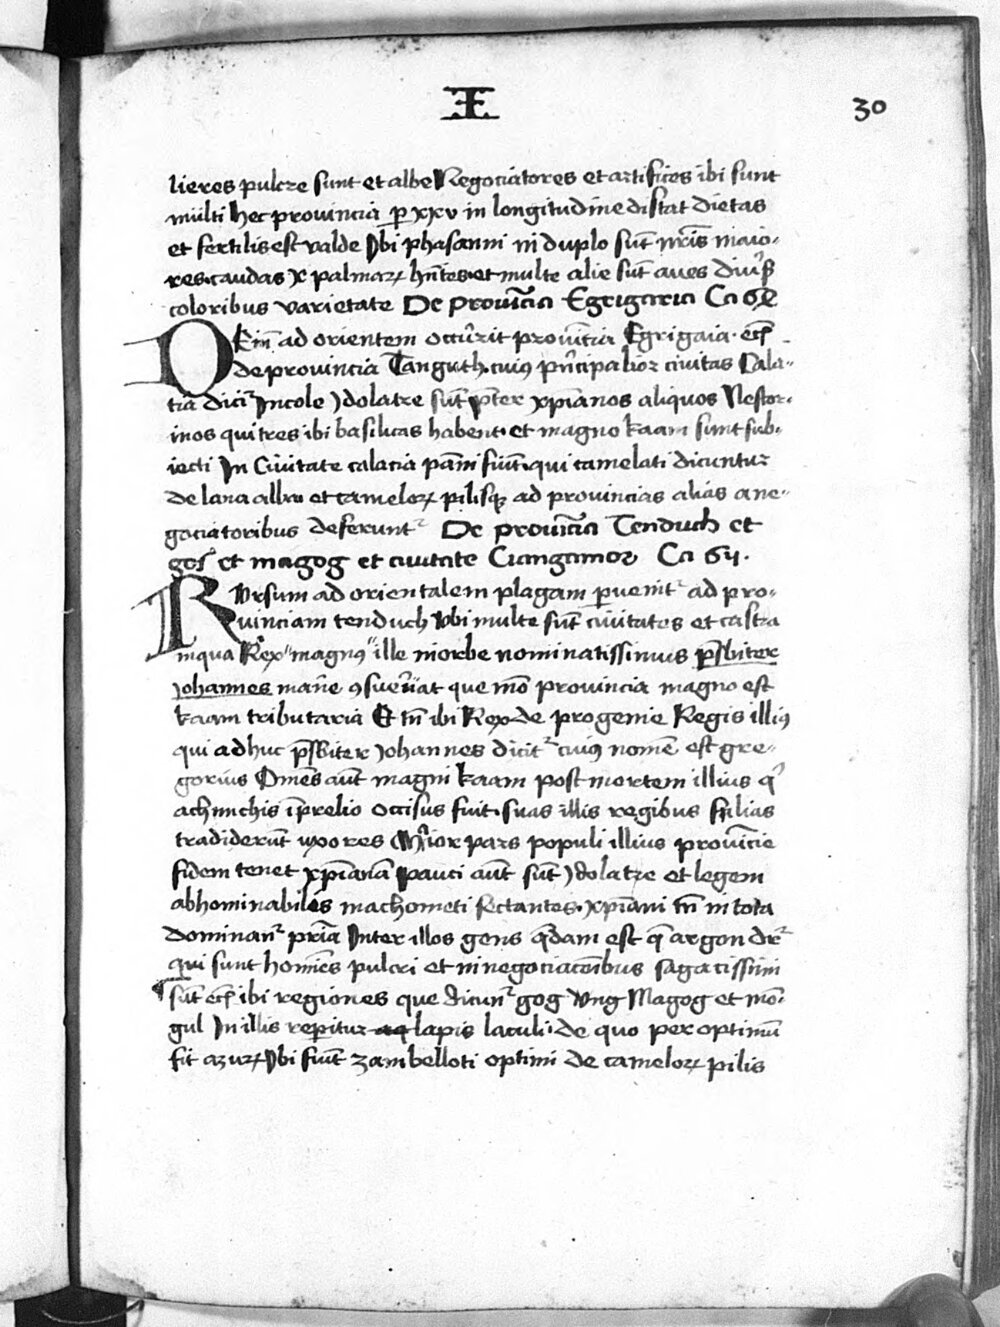 E
30
lieres pulcre sunt et albe Negociatores et artifices ibi sunt
multi Hec provincia p xxv in longitudine distat dietas
et fertilis est valde Ibi phasanni in duplo sūt nr̄is maio-
res. caudas x palmaꝝ hn̄tes. et multe alie sūt aves
coloribus varietate De provīcia Egrigaia Ca 61
DEīn ad orientem occurit provīcia Egrigaia.
de provincia Tanguth. cuiꝰ pn̄cipalior civitas Cala-
tia dicit᷑ Incole ydolatre sūt pt̄er xp̄ianos aliquos Nestor-
inos qui tres ibi basilicas habent. et magno kaam sunt sub-
iecti In Civitate calacia pan̄i fiūt. qui camelati dicuntur
de lana alba et cameloꝝ pilisqꝫ ad provincias alias a ne-
gociatoribus deferunt᷑ De provīcia Tenduch et
gog et magog et civitate Ciangamor Ca 62.
RUrsum ad orientalem plagam pvenit᷑ ad pro-
vinciam tenduch Ubi multe sūt civitates et castra
in qua Rex magnꝰ ille in orbe nominatissimus p̄sbiter
Johannes man̄e ꝯsuev̄at que mō provincia magno est
kaam tributaria Et tn̄ ibi Rex de progenie Regis illiꝰ
qui adhuc p̄sbiter Johannes dicit᷑ cuiꝰ nomē est gre-
gorius Om̄es aūt magni kaam post mortem illius q'
a chinchis ī prelio occisus fuit. suas illis regibus filias
tradiderūt uxores Maior pars populi illius provīcie
fidem tenet xp̄ianā Pauci aūt sūt ydolatre et legem
abhominabiles machometi sectantes. xp̄iani tn̄ in tota
dominan᷑ pr̄ia Inter illos gens q̄dam est q̄ argon dr̄
qui sunt hoīes pulcri et in negociacōibus sagacissimi
sūt ibi regiones que dicun᷑ gog Ung Magog et mō-
gul In illis reperitur lapis laculi. de quo pex optimū
fit azuꝝ Ibi fiūt zambelloti optimi de cameloꝝ pilis